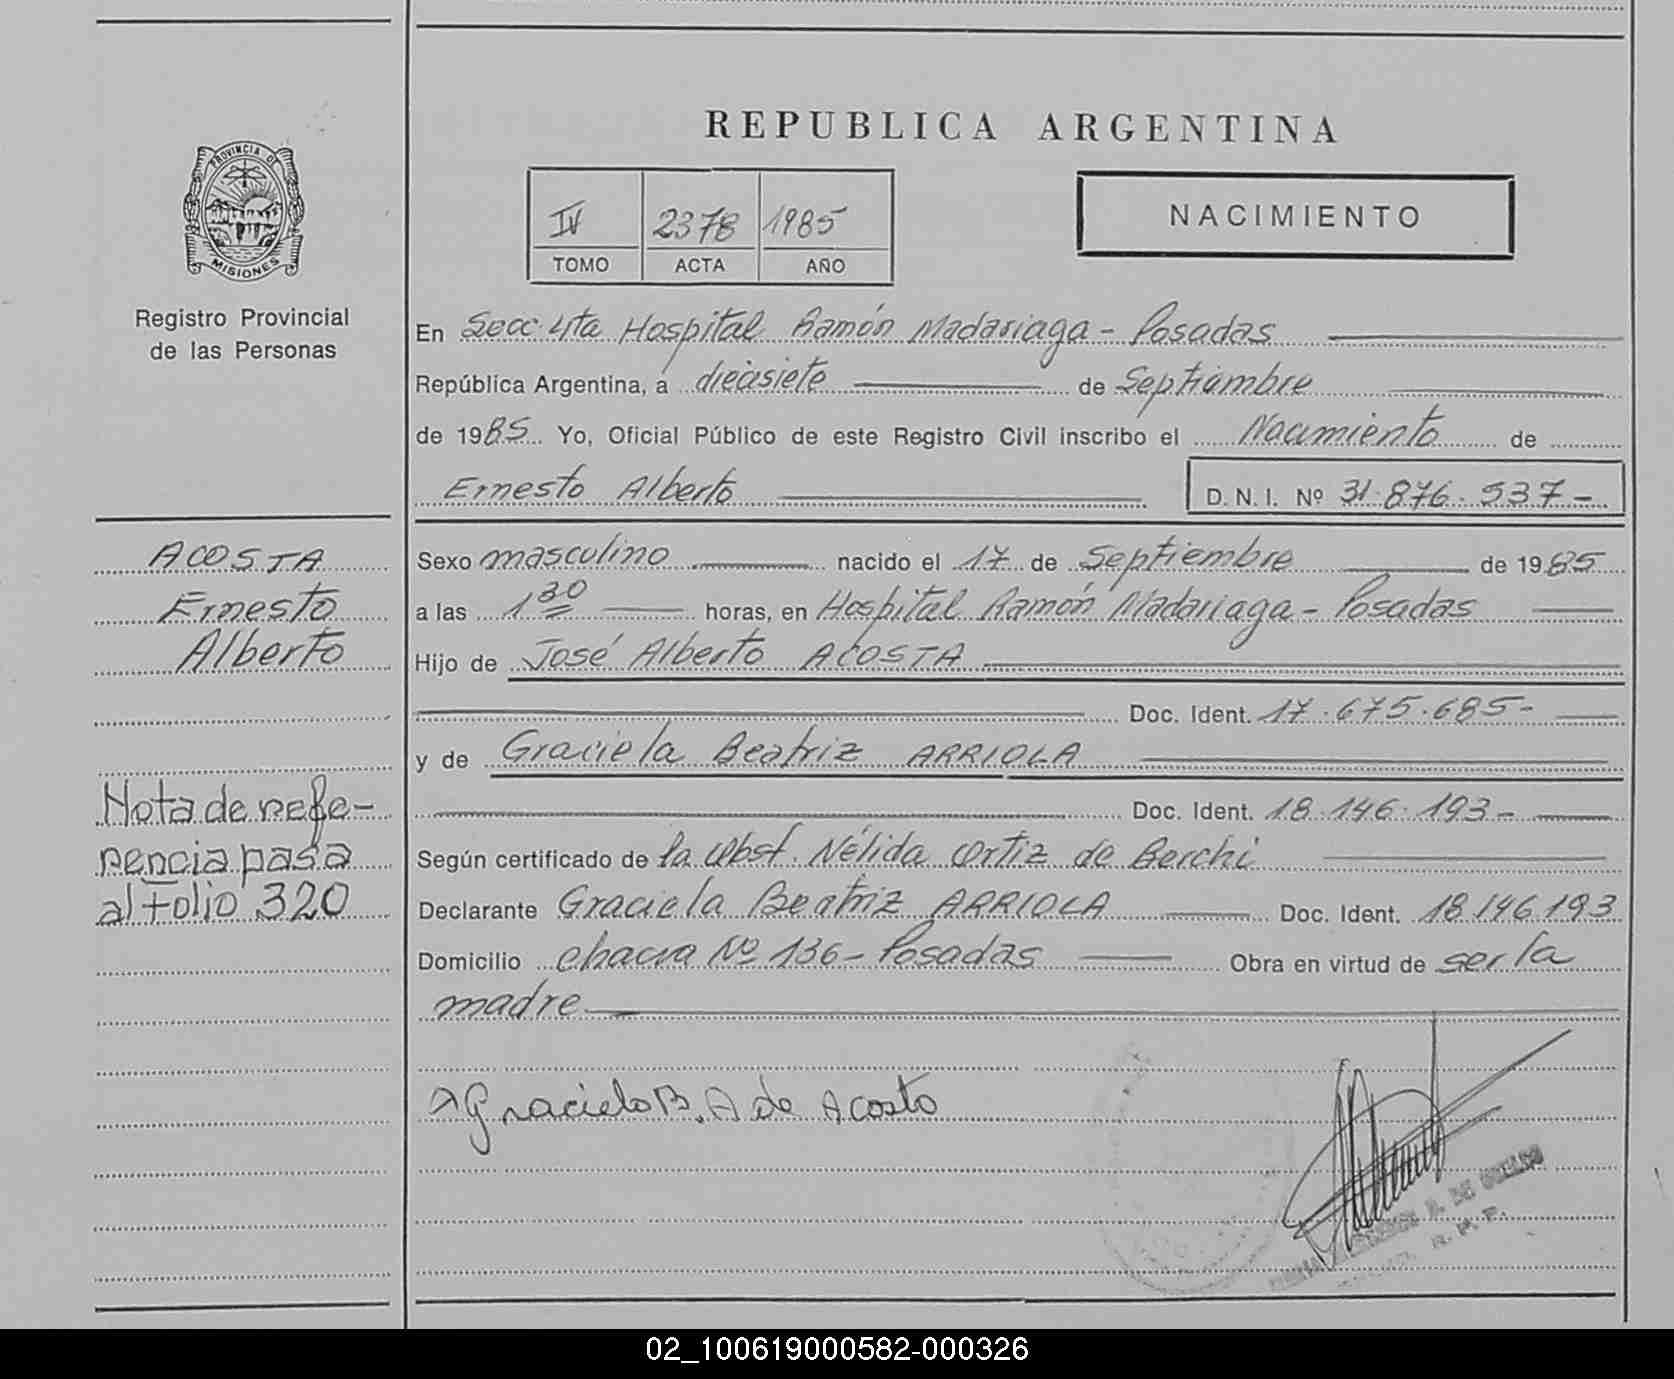 REPUBLICA ARGENTINA
PROVINCIA DE
MISIONES
Registro Provincial
de las Personas
IV 2378 1985
TOMO ACTA AÑO
NACIMIENTO
En Secc 4ta Hospital Ramón Madariaga - Posadas
República Argentina, a diecisiete de Septiembre
de 1985 Yo, Oficial Público de este Registro Civil inscribo el Nacimiento de
Ernesto Alberto D.N.I. Nº 31.876.537-
ACOSTA
Ernesto
Alberto
Sexo masculino nacido el 17 de Septiembre de 1985
a las 1 30 horas, en Hospital Ramón Madariaga - Posadas
Hijo de José Alberto ACOSTA
Doc. Ident. 17.675.685-
y de Graciela Beatriz ARRIOLA
Doc. Ident. 18.146.193-
Nota de refe-
rencia pasa
al Folio 320
Según certificado de la Obst. Nélida Ortiz de Berchi
Declarante Graciela Beatriz ARRIOLA Doc. Ident. 18.146.193
Domicilio chacra Nº 136 - Posadas Obra en virtud de ser la
madre
Graciela B. A de Acosta
02_100619000582-000326